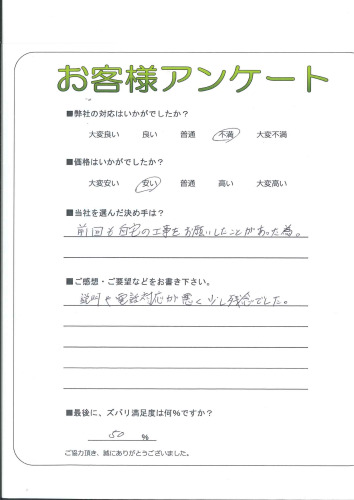 お客様アンケート
■弊社の対応はいかがでしたか?
大変良い 良い 普通 不満 大変不満
■価格はいかがでしたか?
大変安い 安い 普通 高い 大変高い
■当社を選んだ決め手は?
前回も自宅の工事をお願いしたことがあった為。
■ご感想・ご要望などをお書き下さい。
説明や電話対応が悪く少し残念でした。
■最後に、ズバリ満足度は何%ですか?
50 %
ご協力頂き、誠にありがとうございました。